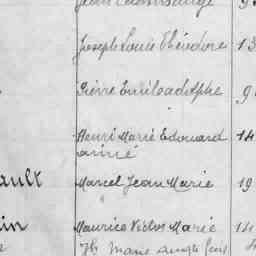 Joseph Louis Théodore 13
Pierre Emile adolphe 9
Henri Marie Edouard 14
aimé
ault Marcel Jean Marie 19
in Maurice Victor Marie 14
Marie